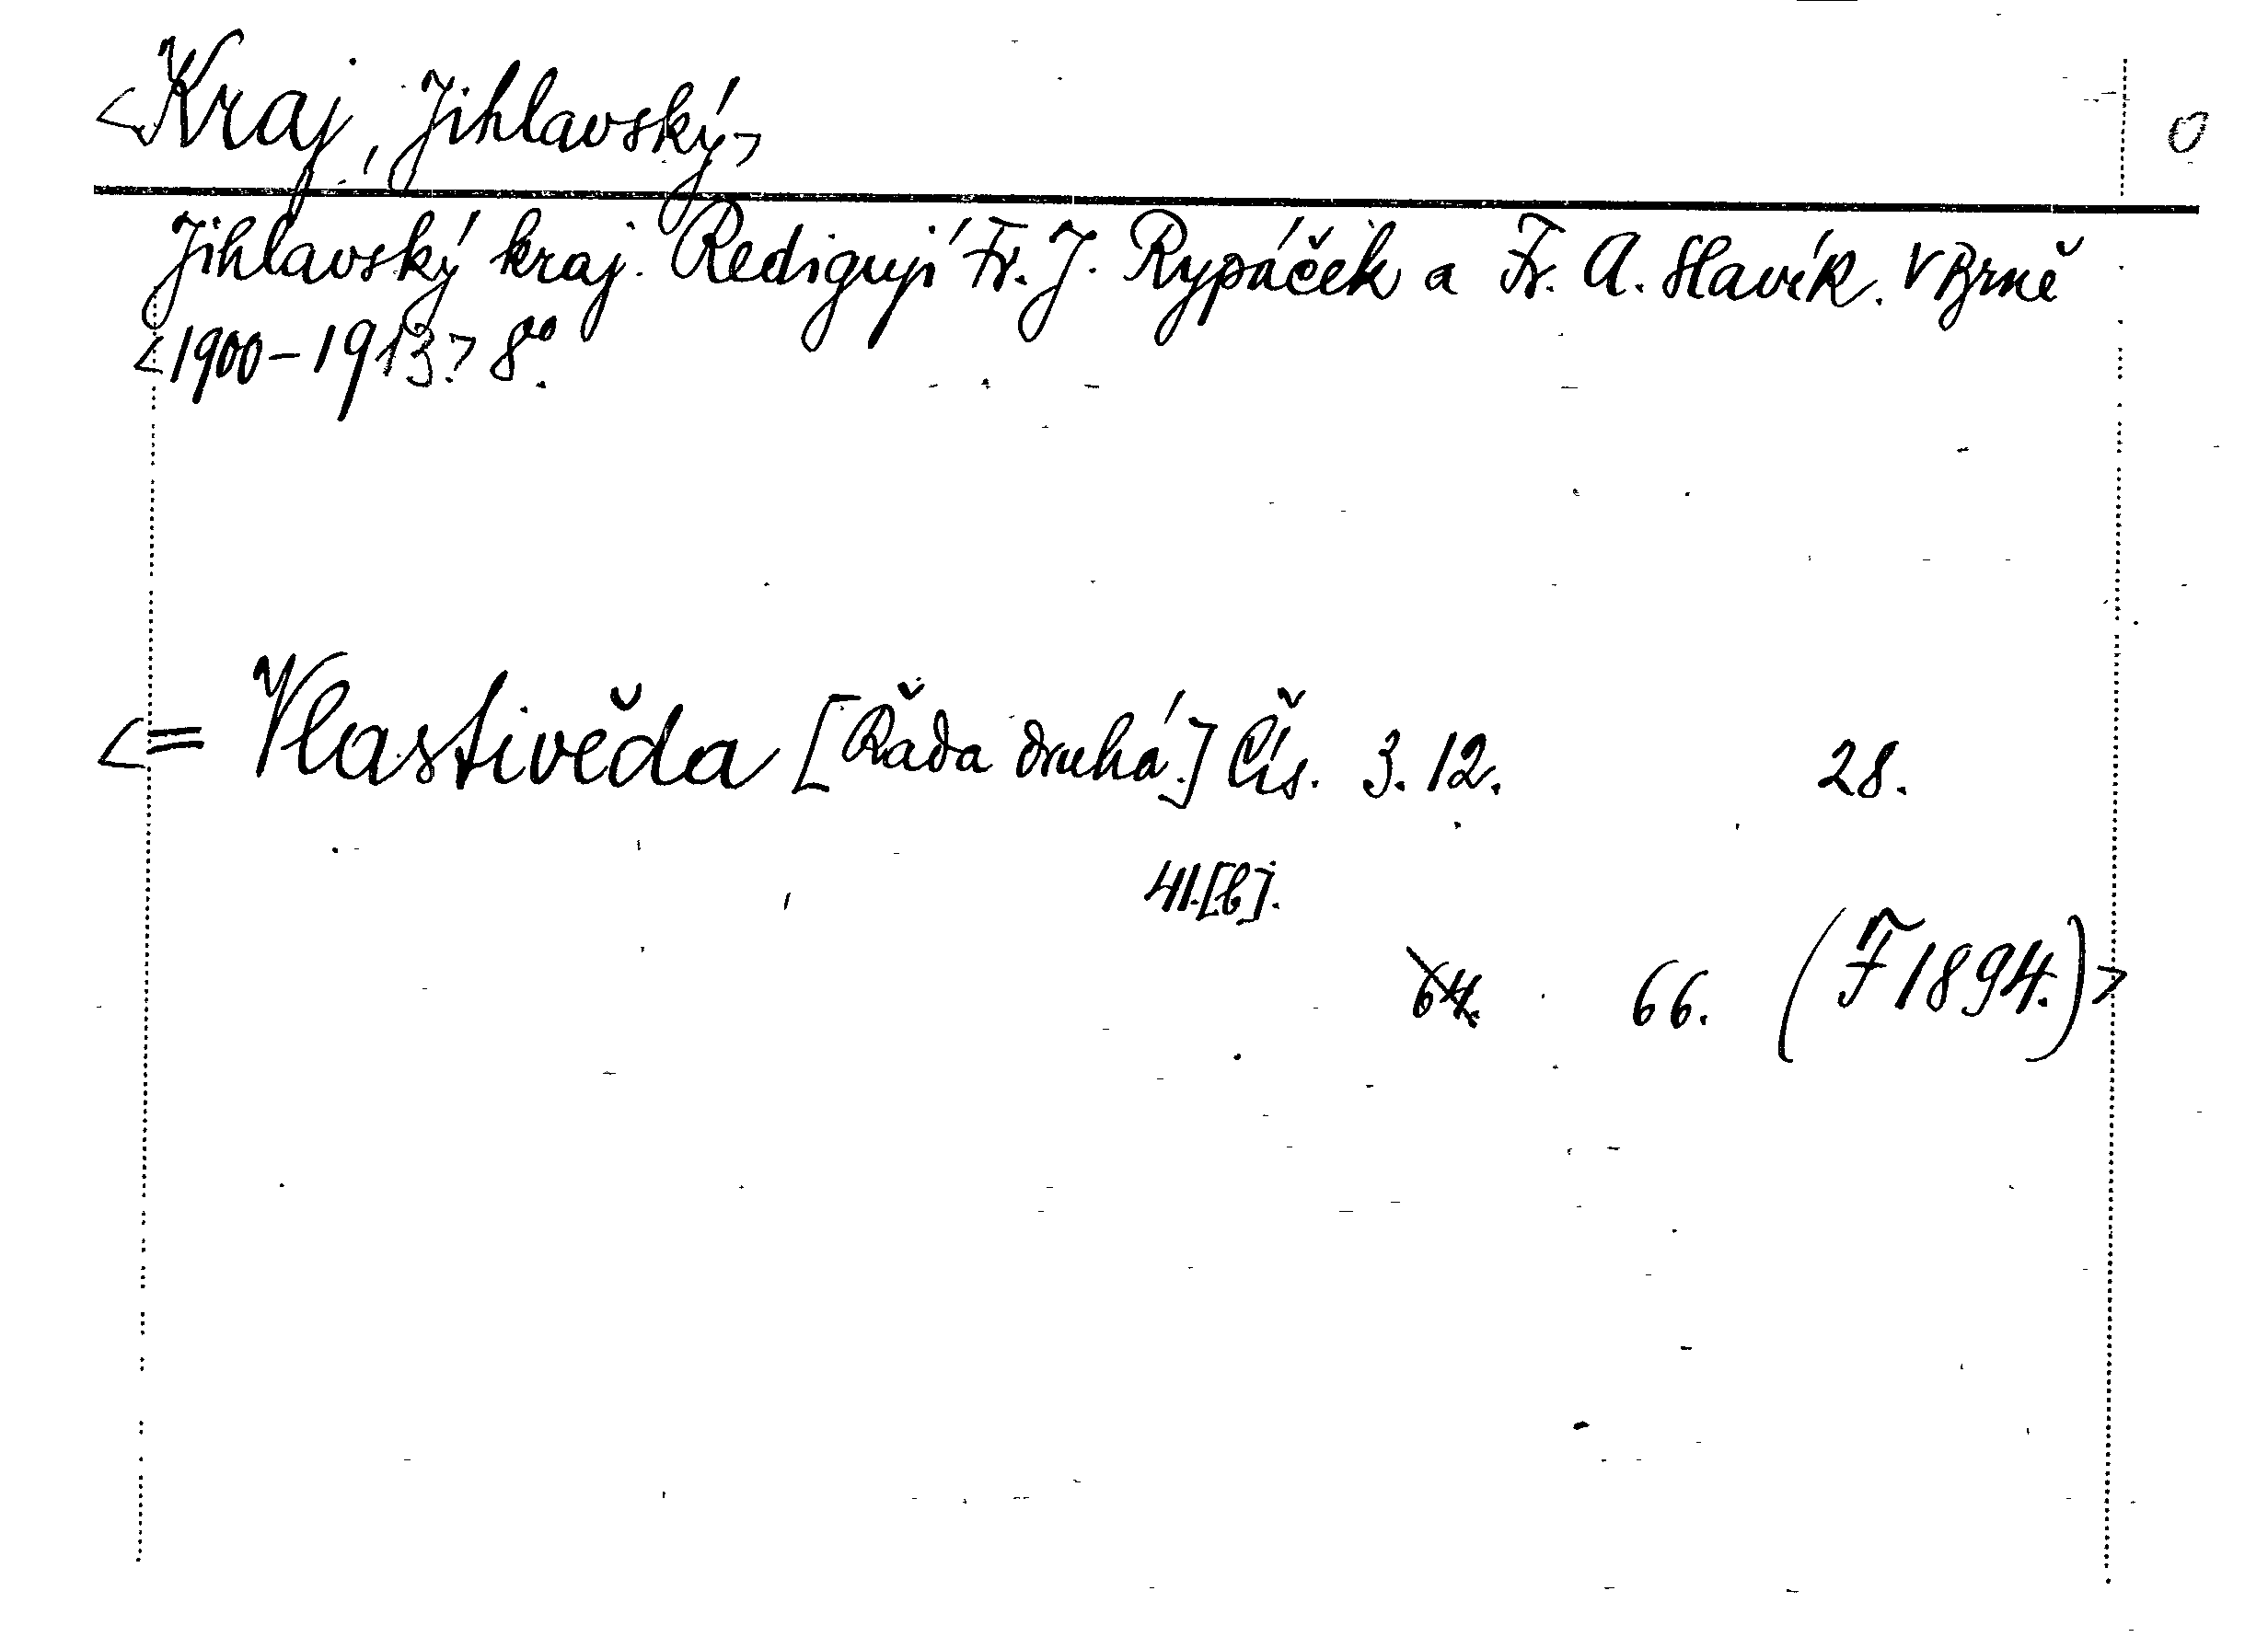 <Kraj, Jihlavský> O
Jihlavský kraj. Redigují Fr. J. Rypáček a Fr. A. Slavík. V Brně
<1900–1913> 8°.
<= Vlastivěda [Řada druhá.] Čís. 3. 12. 28.
41.[b].
64. 66. (F 1894.)>